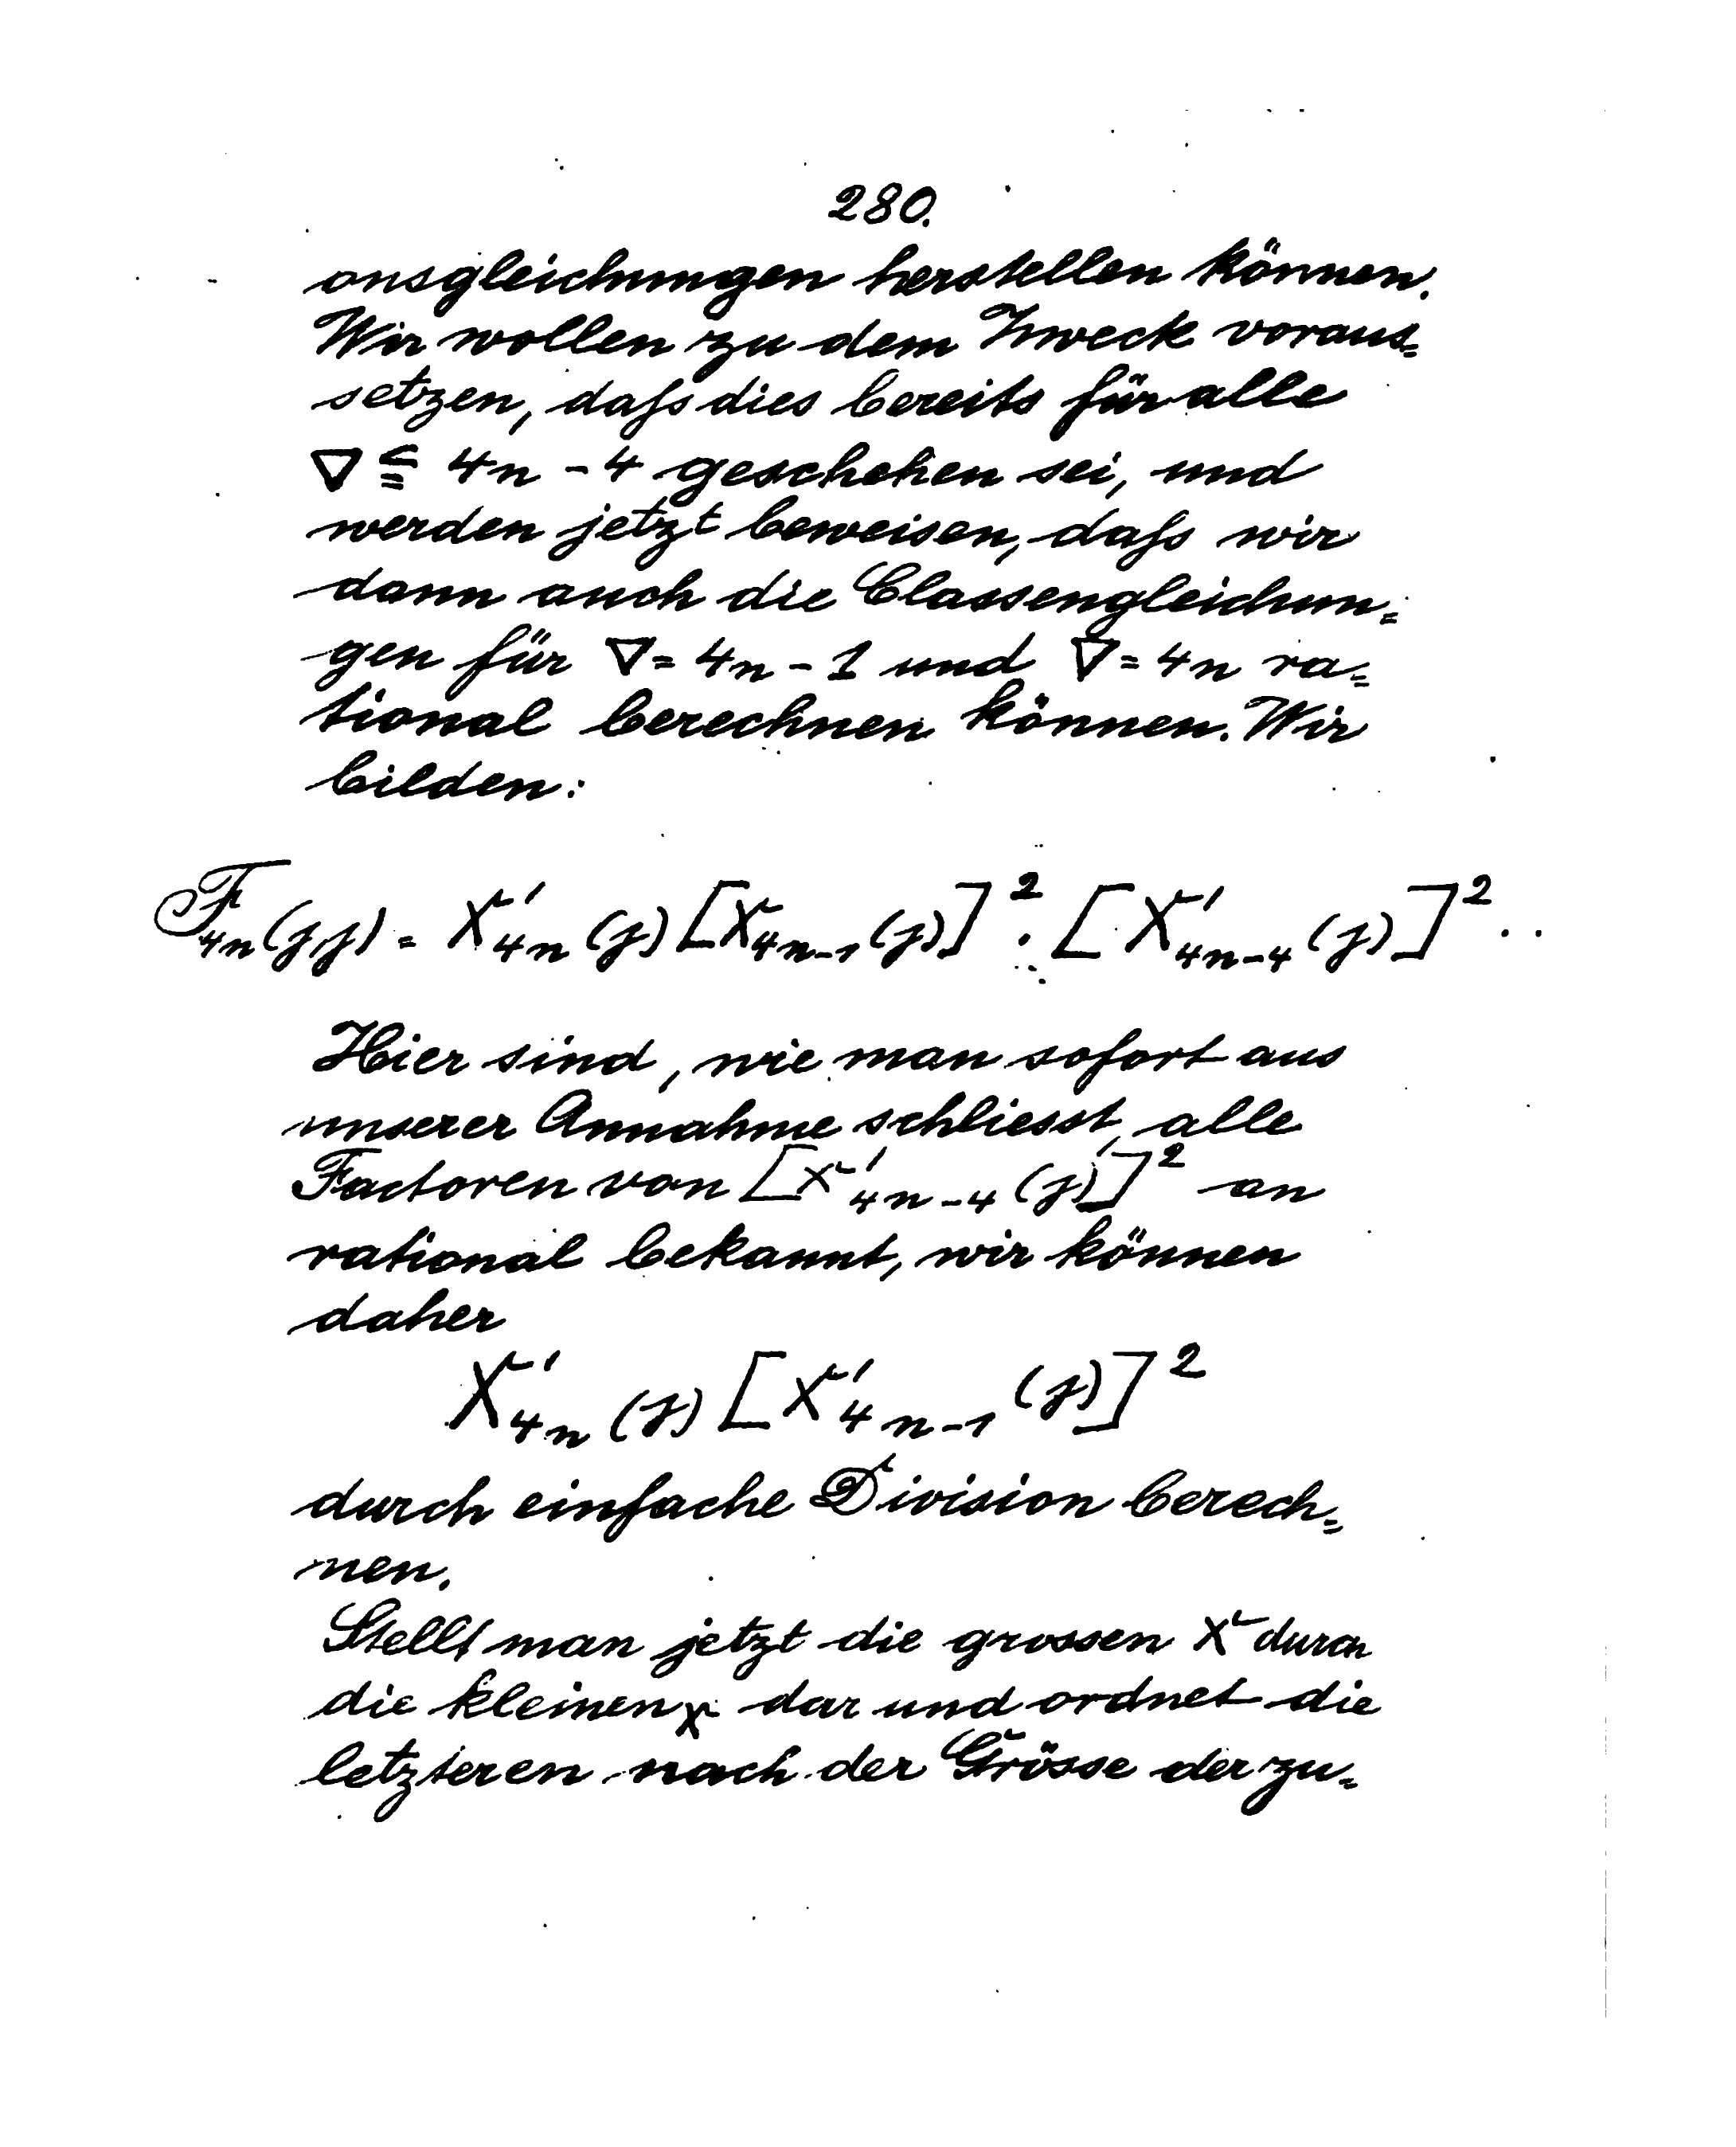 280.
onsgleichungen herstellen können.
Wir wollen zu dem Zweck voraus=
setzen, daſs dies bereits für alle
∇ ≦ 4n - 4 geschehen sei, und
werden jetzt beweisen, daſs wir
dann auch die Classengleichun=
gen für ∇ = 4n - 1 und ∇ = 4n ra=
tional berechnen können. Wir
bilden:
F₄ₙ(j,j) = X'₄ₙ(j)[X₄ₙ₋₁(j)]² · [X'₄ₙ₋₄(j)]² ..
Hier sind, wie man sofort aus
unserer Annahme schliesst, alle
Factoren von [X'₄ₙ₋₄(j)]² an
rational bekannt, wir können
daher
X'₄ₙ(j)[X'₄ₙ₋₁(j)]²
durch einfache Division berech=
nen.
Stellt man jetzt die grossen X durch
die kleinen χ dar und ordnet die
letzteren nach der Grösse der zu=